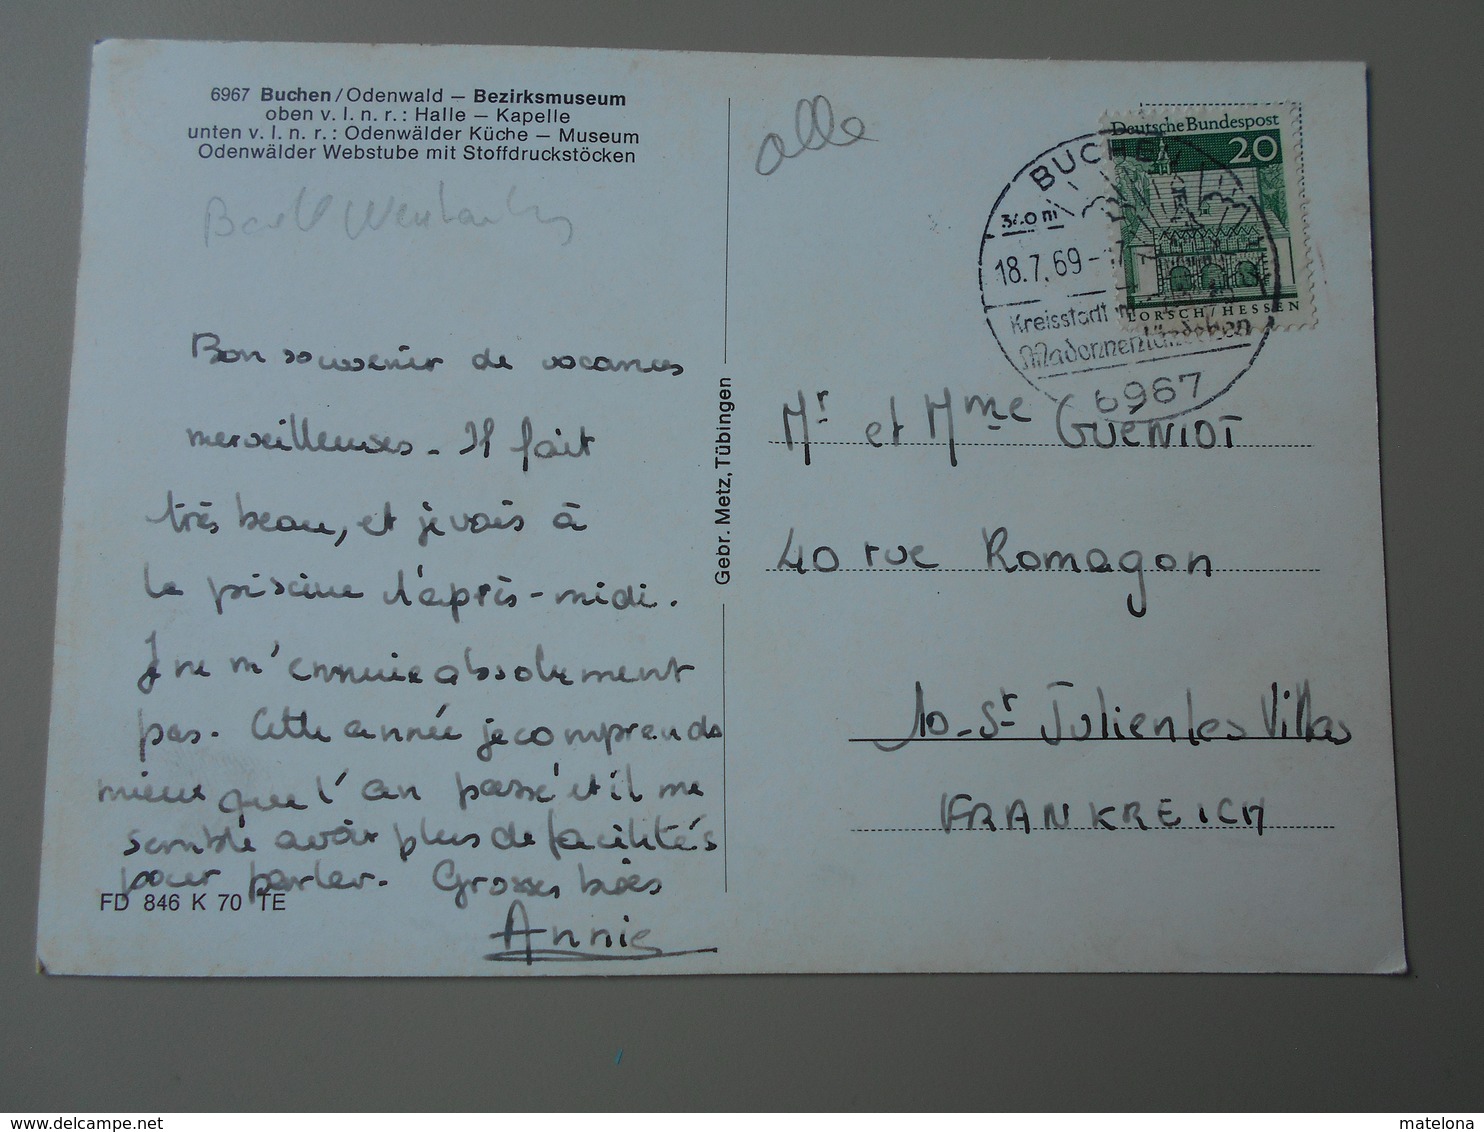 6967 Buchen/Odenwald – Bezirksmuseum
oben v. l. n. r.: Halle – Kapelle
unten v. l. n. r.: Odenwälder Küche – Museum
Odenwälder Webstube mit Stoffdruckstöcken
Bon souvenir de vacances
merveilleuses. Il fait
très beau, et je vais à
la piscine l'après-midi.
Je ne m'ennuie absolument
pas. Cette année je comprends
mieux que l'an passé et il me
semble avoir plus de facilités
pour parler. Grosses bises
Annie
FD 846 K 70 TE
Gebr. Metz, Tübingen
alle
Deutsche Bundespost
20
LORSCH/HESSEN
BUCHEN
340 m
18.7.69
Kreisstadt
Madonnenländchen
6967
Mr et Mme GUENIOT
40 rue Romagon
10-St Julien les Villas
FRANKREICH
matelona